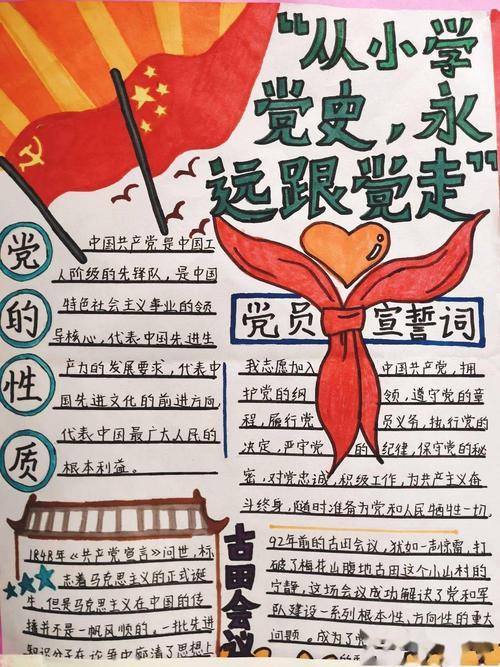 “从小学
党史，永
远跟党走”
党的性质
中国共产党是中国工
人阶级的先锋队，是中国
特色社会主义事业的领
导核心，代表中国先进生
产力的发展要求，代表中
国先进文化的前进方向，
代表中国最广大人民的
根本利益。
党员宣誓词
我志愿加入中国共产党，拥
护党的纲领，遵守党的章
程，履行党员义务，执行党的
决定，严守党的纪律，保守党的秘
密，对党忠诚，积极工作，为共产主义奋
斗终身，随时准备为党和人民牺牲一切，
1848年《共产党宣言》问世，标
志着马克思主义的正式诞
生，但是马克思主义在中国的传
播并不是一帆风顺的，一批先进
知识分子在论争中廓清了思想上
古田会议
92年前的古田会议，犹如一声惊雷，打
破了梅花山腹地古田这个小山村的
宁静，这场会议成功解决了党和军
队建设一系列根本性、方向性的重大
问题，成为了党